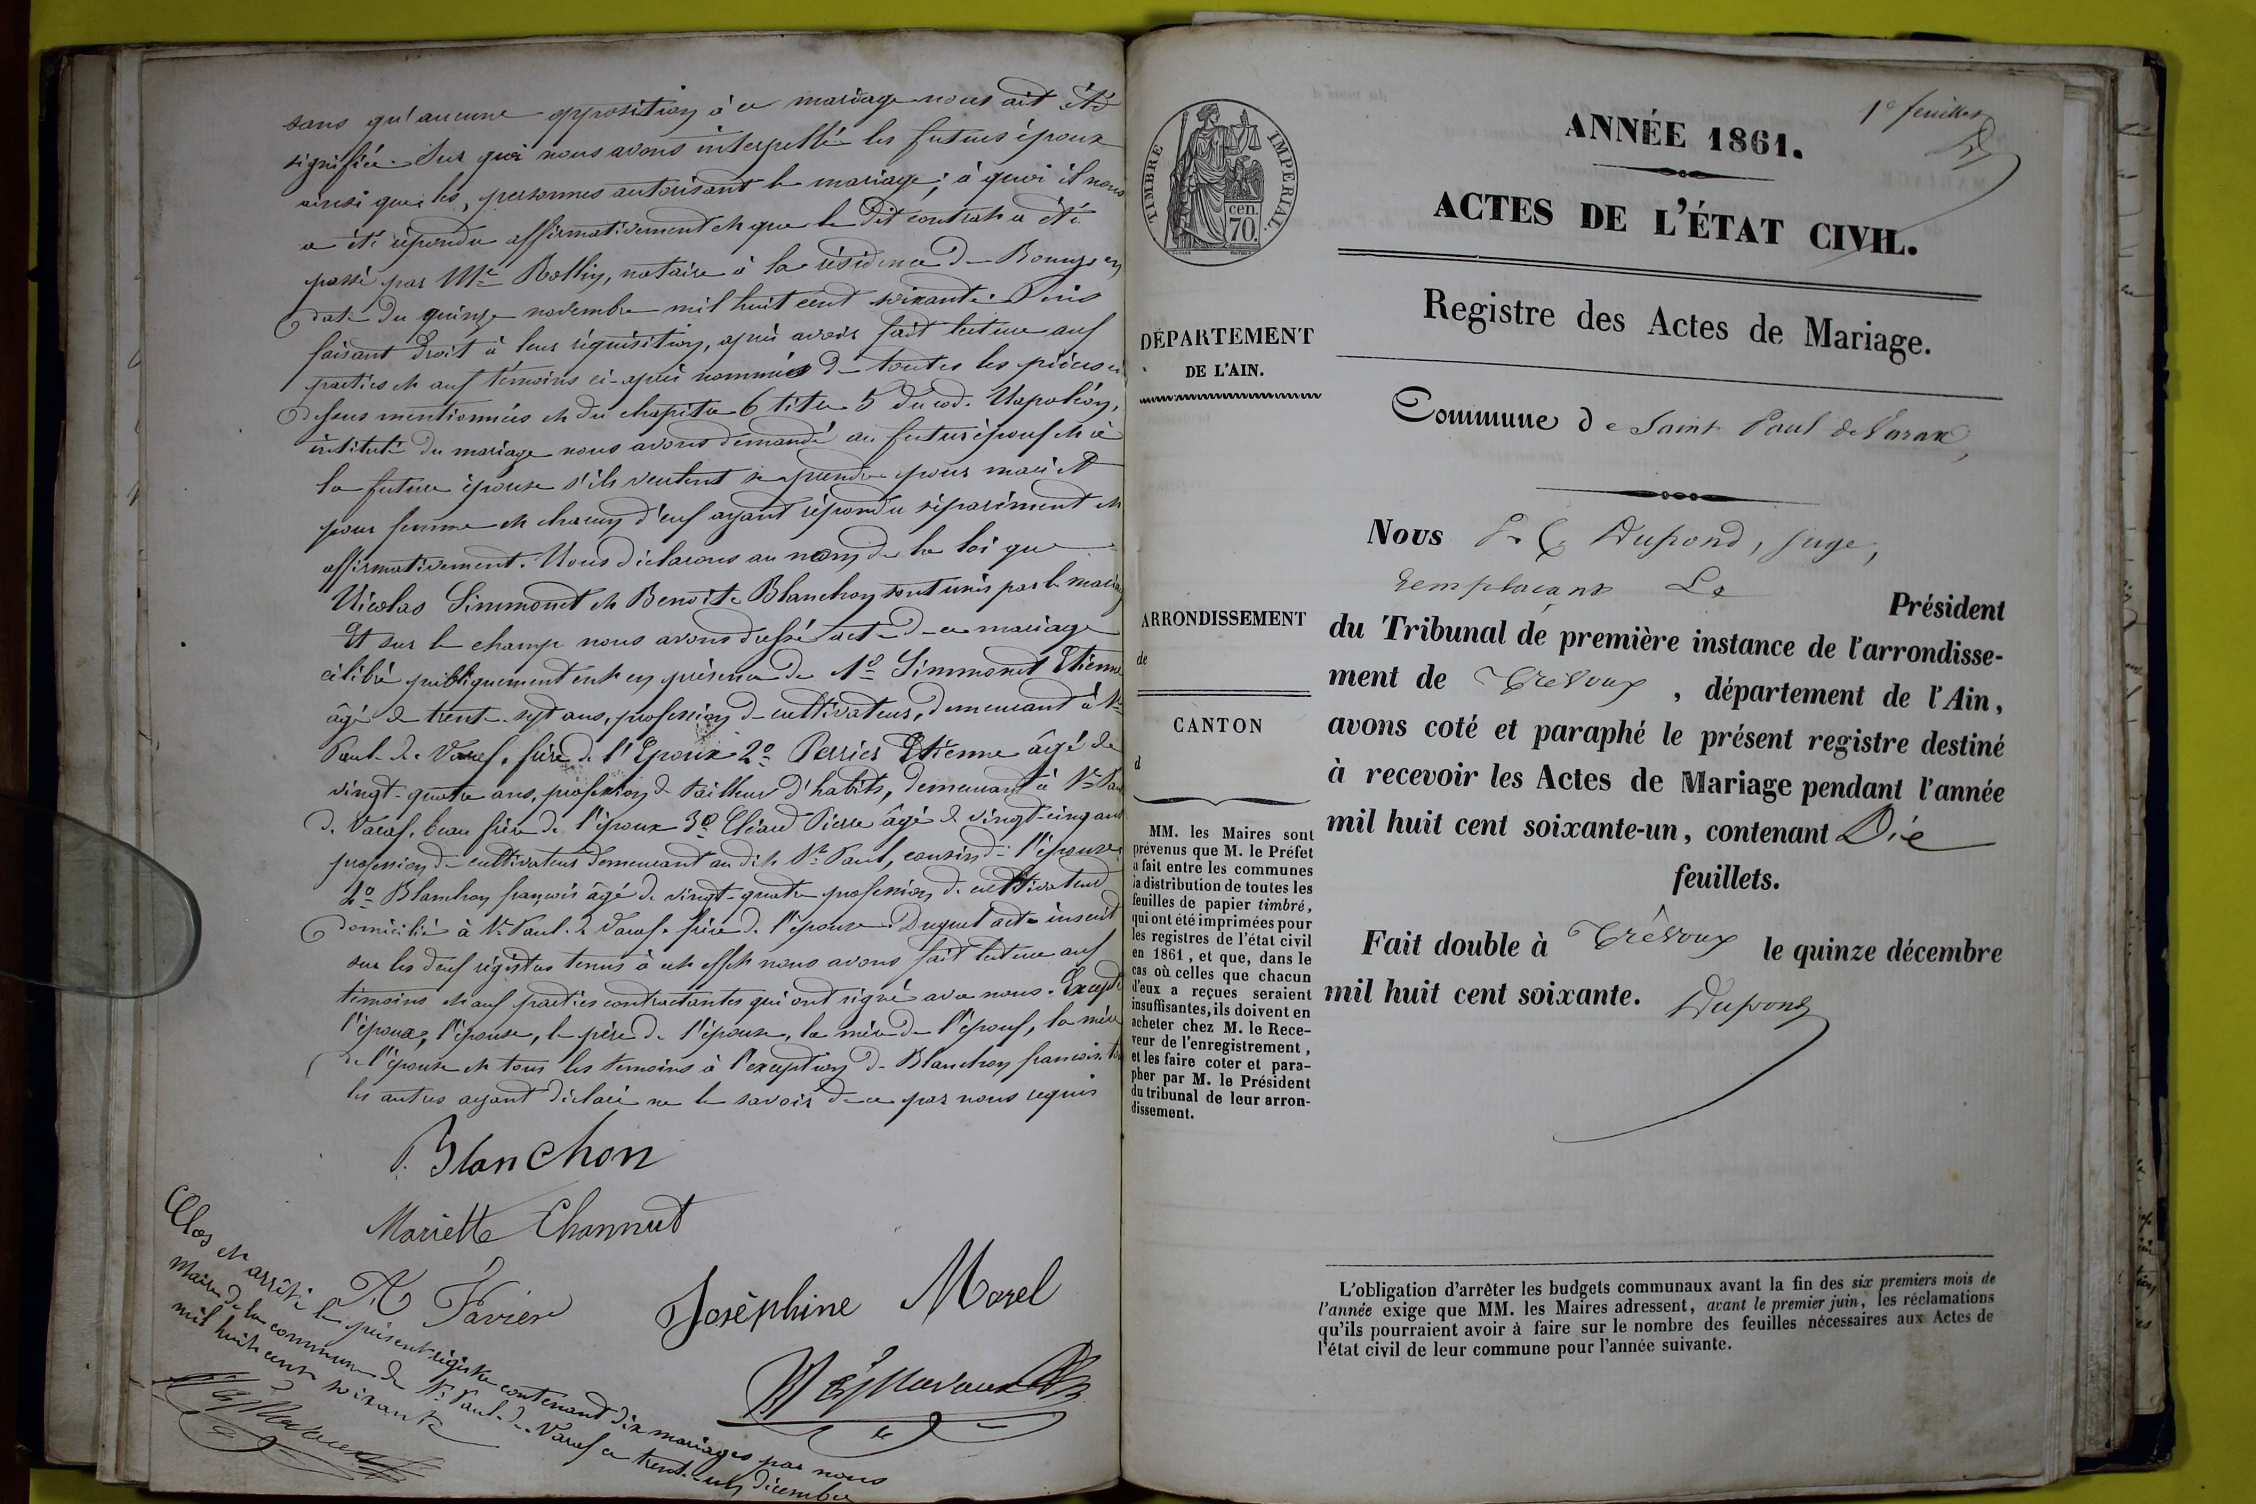 sans qu'aucune opposition à ce mariage nous ait été
signifiée. Sur quoi nous avons interpellé les futurs époux
ainsi que les personnes autorisant le mariage; à quoi il nous
a été répondu affirmativement et que le dit contrat a été
passé par Me Rollin, notaire à la résidence de Bourg en
date du quinze novembre mil huit cent soixante. Puis
faisant droit à leur réquisition, après avoir fait lecture aux
parties et aux témoins ci-après nommés de toutes les pièces ci
dessus mentionnées et du chapitre 6 titre 5 du cod. Napoléon,
intitulé du mariage nous avons demandé au futur époux et à
la future épouse s'ils veulent se prendre pour mari et
pour femme et chacun d'eux ayant répondu séparément et
affirmativement. Nous déclarons au nom de la loi que
Nicolas Simmonet et Benoite Blanchon sont unis par le mariage
Et sur le champ nous avons dressé acte de ce mariage
célébré publiquement et en présence de 1º Simmonet Etienne
âgé de trente-sept ans, profession de cultivateur, demeurant à St
Paul de Varax, frère de l'Epoux 2º Perrier Etienne âgé de
vingt-quatre ans, profession de tailleur d'habits, demeurant à St Paul
de Varax, beau frère de l'époux 3º Pierre âgé de vingt-cinq ans
profession de cultivateur demeurant au dit St Paul, cousin de l'épouse
4º Blanchon françois âgé de vingt-quatre profession de cultivateur
domicilié à St Paul de Varax frère de l'épouse. Duquel acte inscrit
sur les deux régistres tenus à cet effet nous avons fait lecture aux
témoins et aux parties contractantes qui ont signé avec nous. Excepté
l'époux, l'épouse, le père de l'épouse, la mère de l'époux, la mère
de l'épouse et tous les témoins à l'exception de Blanchon francois
les autres ayant déclaré ne le savoir de ce par nous requis
Blanchon
Mariette Channut
Favier
Josèphine Morel
Clos et arrêté le présent régistre contenant dix mariages par nous
Maire de la commune de St Paul-de-Varax ce trente-un décembre
mil huit cent soixante
TIMBRE IMPERIAL.
cen.
70.
DÉPARTEMENT
DE L'AIN.
ARRONDISSEMENT
de
CANTON
d
MM. les Maires sont
prévenus que M. le Préfet
a fait entre les communes
la distribution de toutes les
feuilles de papier timbré,
qui ont été imprimées pour
les registres de l'état civil
en 1861, et que, dans le
cas où celles que chacun
d'eux a reçues seraient
insuffisantes, ils doivent en
acheter chez M. le Rece-
veur de l'enregistrement,
et les faire coter et para-
pher par M. le Président
du tribunal de leur arron-
dissement.
1e feuillet
ANNÉE 1861.
ACTES DE L'ÉTAT CIVIL.
Registre des Actes de Mariage.
Commune de Saint Paul de Varax,
Nous Dupond, juge,
remplaçant Le Président
du Tribunal de première instance de l'arrondisse-
ment de Trévoux, département de l'Ain,
avons coté et paraphé le présent registre destiné
à recevoir les Actes de Mariage pendant l'année
mil huit cent soixante-un, contenant Dix
feuillets.
Fait double à Trévoux le quinze décembre
mil huit cent soixante. Dupond
L'obligation d'arrêter les budgets communaux avant la fin des six premiers mois de
l'année exige que MM. les Maires adressent, avant le premier juin, les réclamations
qu'ils pourraient avoir à faire sur le nombre des feuilles nécessaires aux Actes de
l'état civil de leur commune pour l'année suivante.